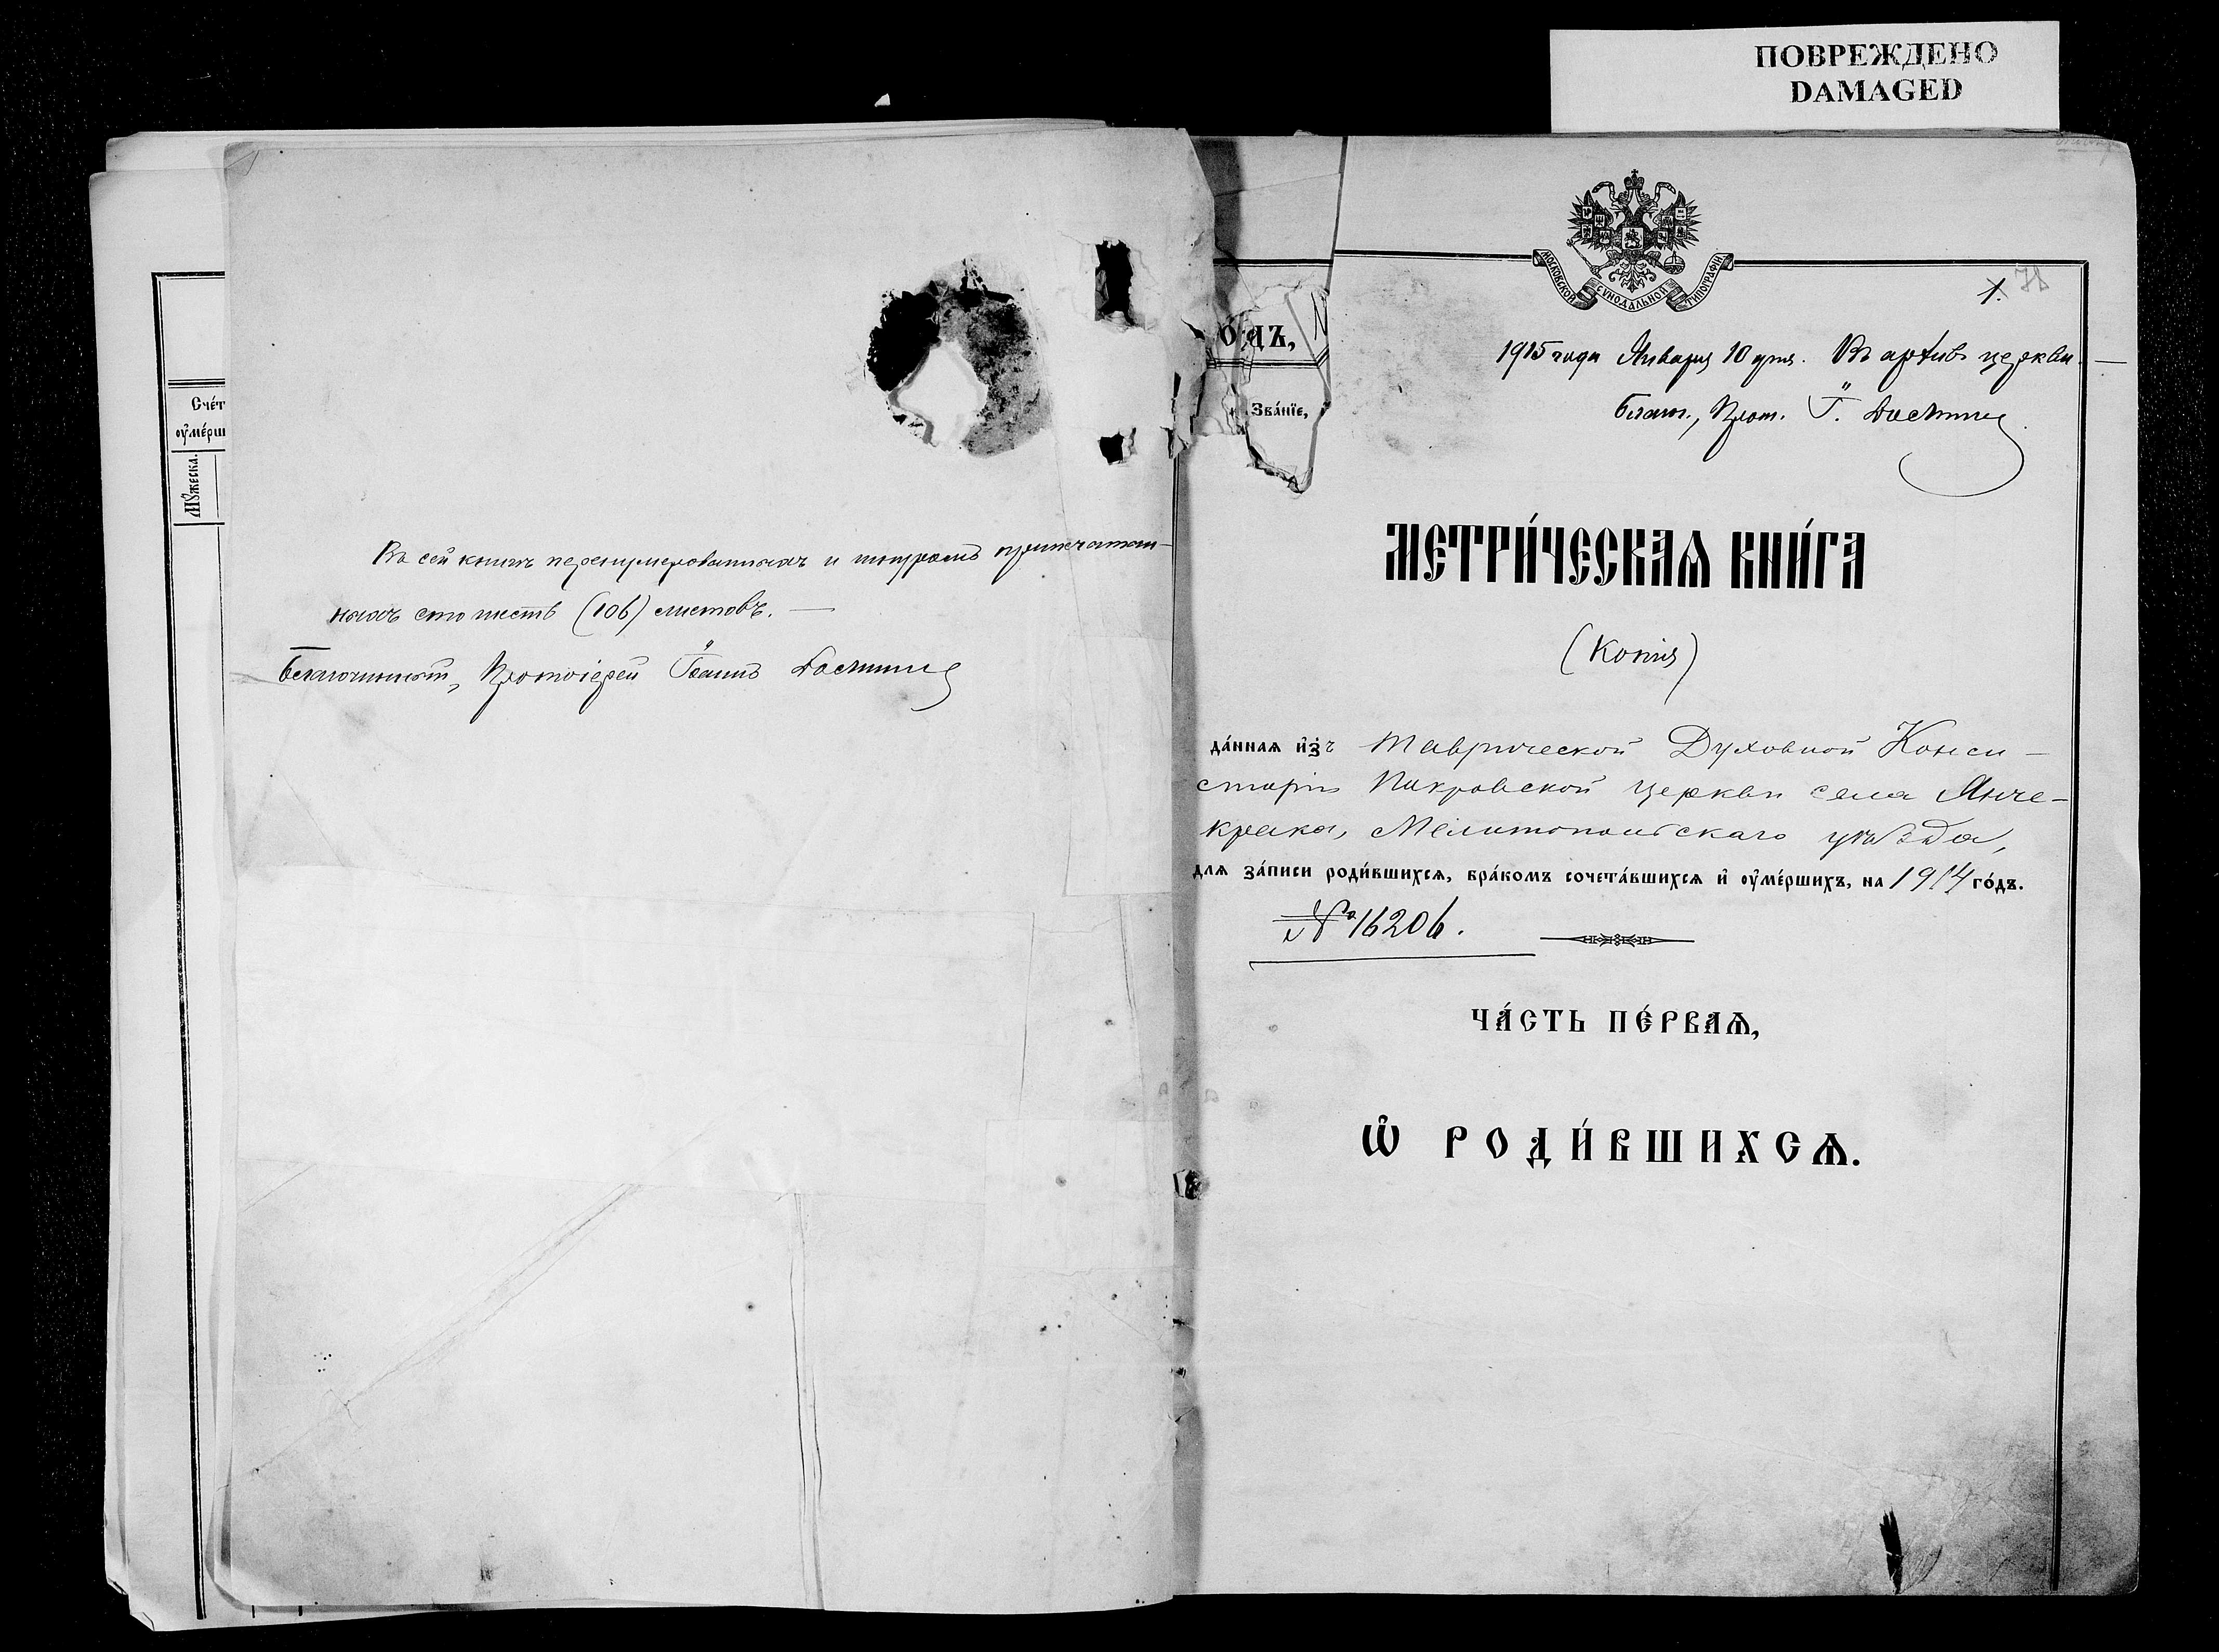 ПОВРЕЖДЕНО
DAMAGED
Счéт
оу҆мéрш
Мꙋ́жеска.
Въ сей книгѣ перенумерованныхъ и шнуромъ припечатан-
ныхъ сто шесть (106) листовъ. —
Благочинный, Протоіерей Іоаннъ
одъ,
Звáнїе,
МОСКОВСКОЙ СѴНОДАЛЬНОЙ ТИПОГРАФІИ
1.
1915 года Января 10 дня. Въ архивъ церкви. —
Благоч., Прот. І.
МЕТРИ́ЧЕСКАѦ КНИ́ГА
(Копія)
дáннаѧ и҆зъ Таврической Духовной Конси-
сторіи Покровской церкви села Янче-
крака, Мелитопольскаго уѣзда,
длѧ зáписи роди́вшихсѧ, брáкомъ сочетáвшихсѧ и҆ оу҆мéршихъ, на 1914 гóдъ.
№ 16206.
ЧÁСТЬ ПÉРВАѦ,
Ѡ҆ РОДИ́ВШИХСѦ.